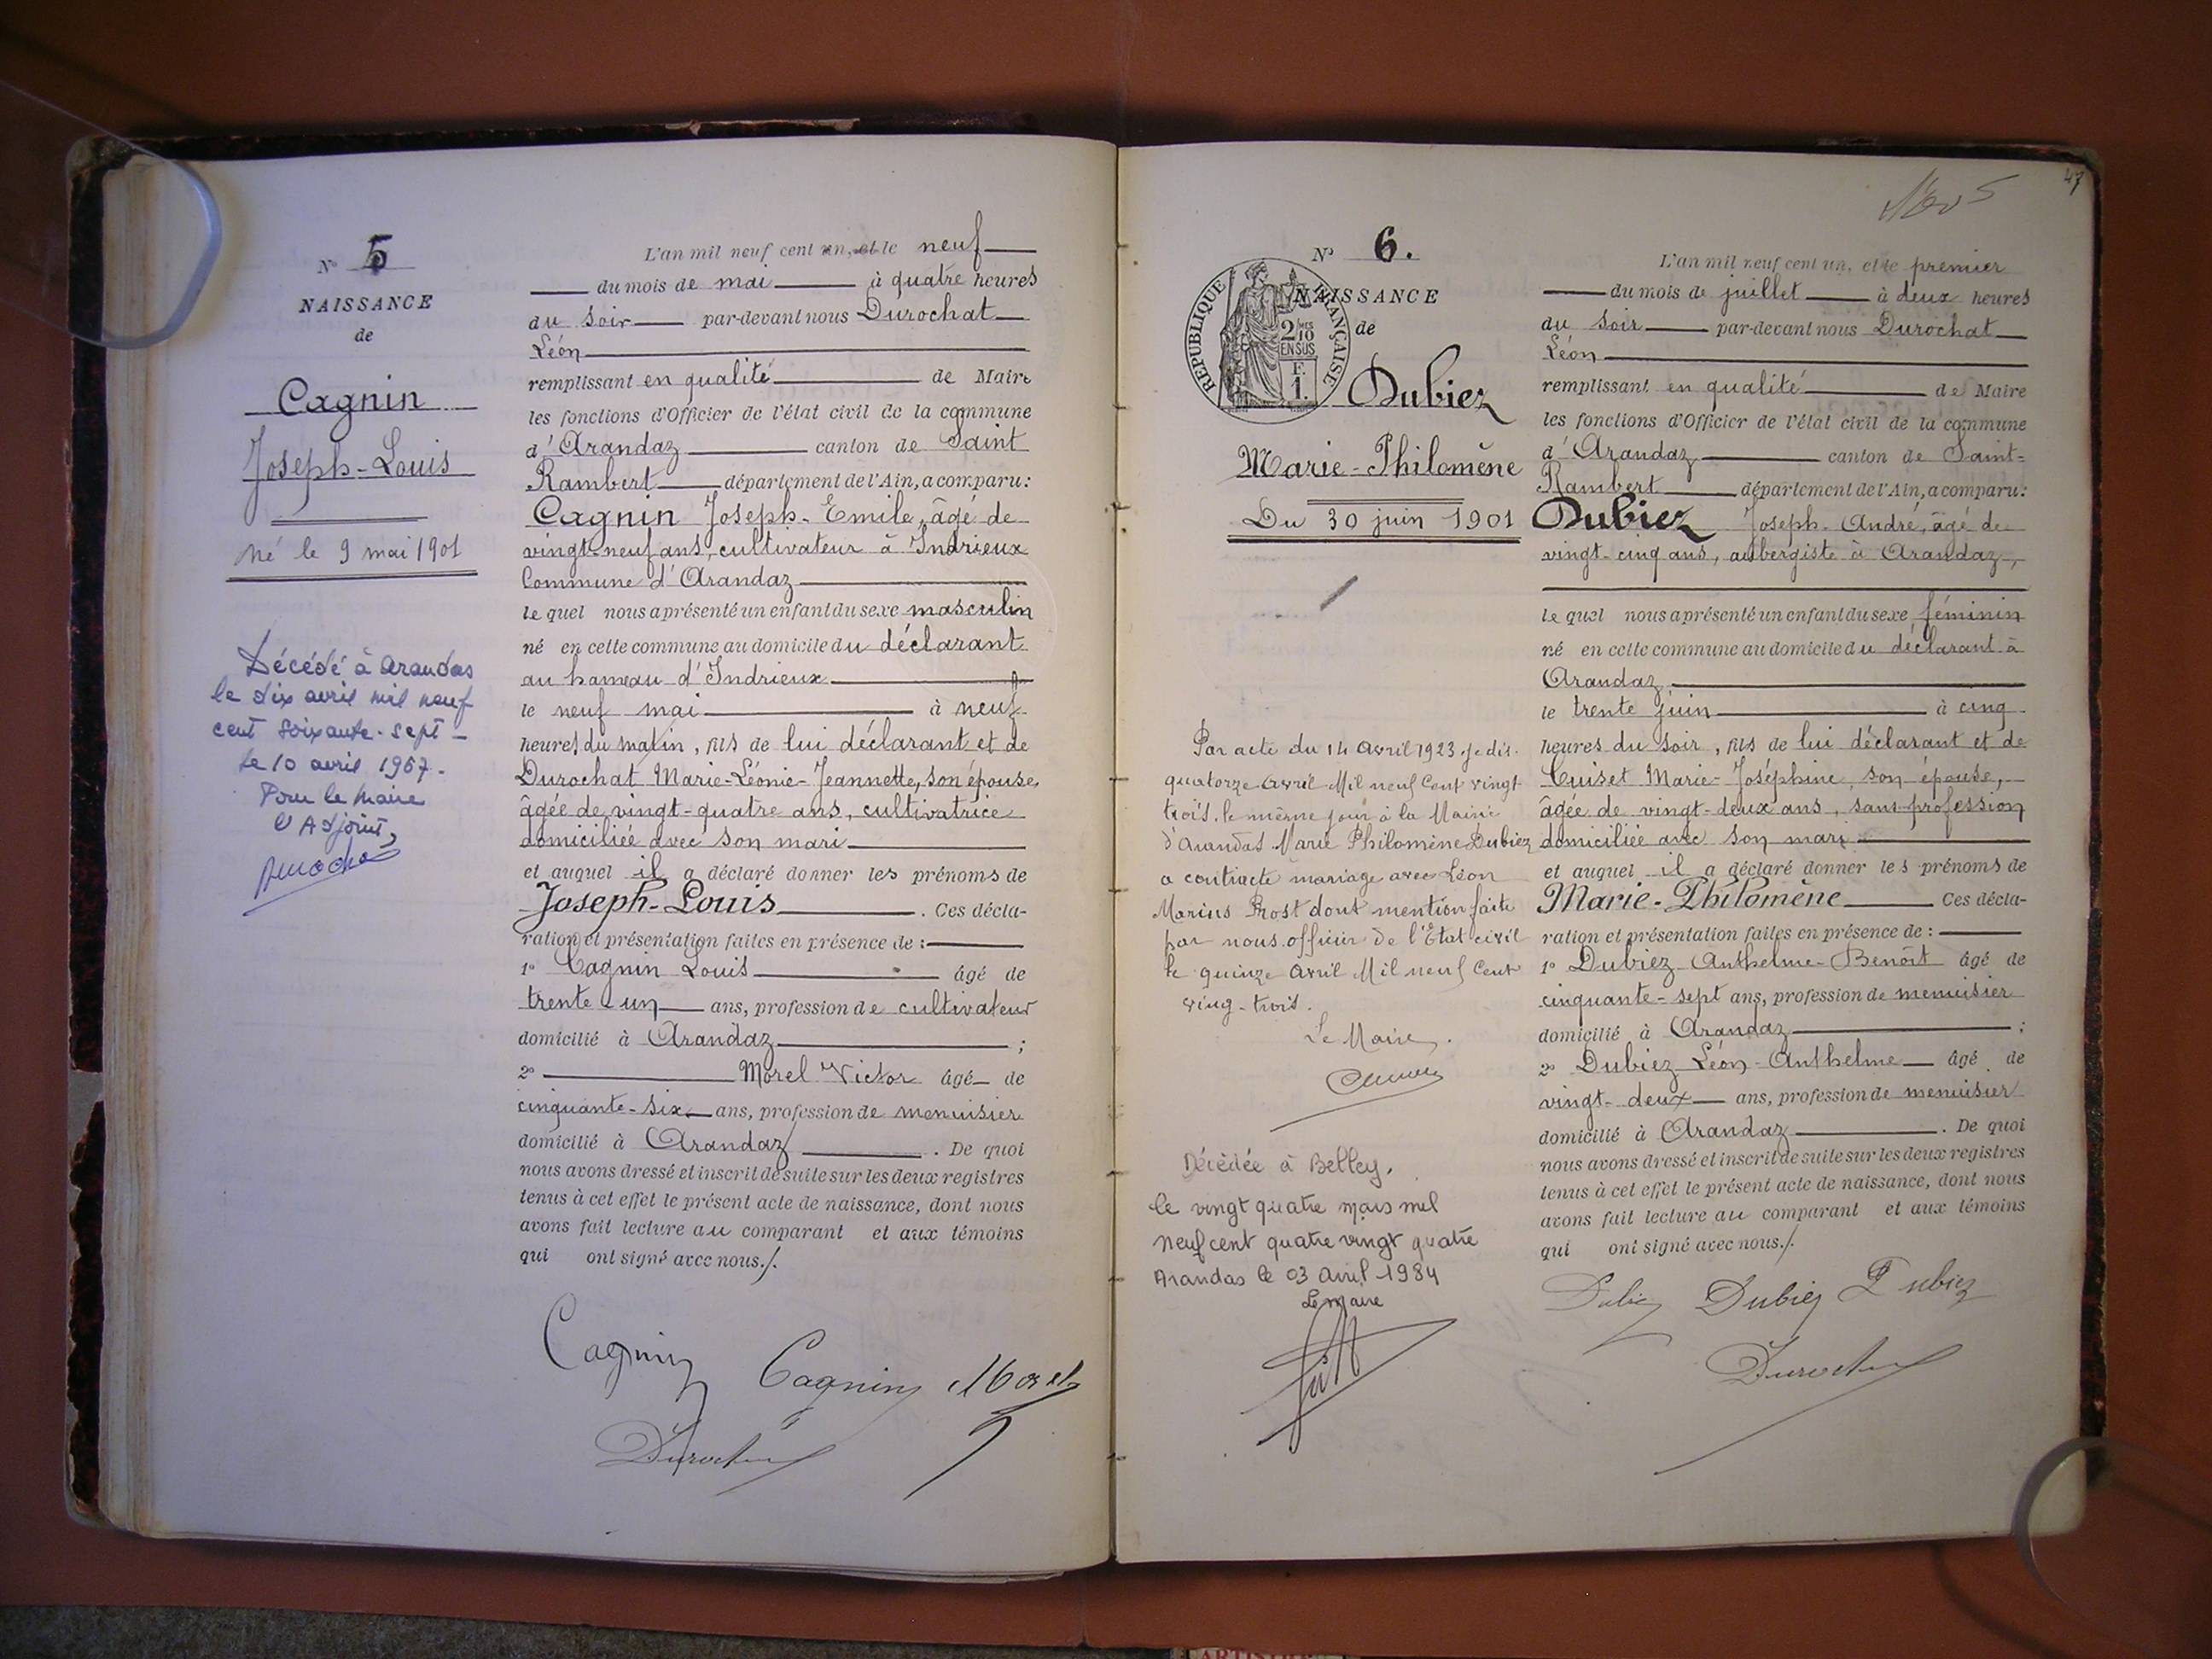 N° 5
NAISSANCE
de
Cagnin
Joseph-Louis
né le 9 mai 1901
Décédé à Arandas
le dix avril mil neuf
cent soixante-sept -
le 10 avril 1967.
Pour le Maire
l'Adjoint,
L'an mil neuf cent un, et le neuf
du mois de mai à quatre heures
du soir par-devant nous Durochat
Léon
remplissant en qualité de Maire
les fonctions d'Officier de l'état civil de la commune
d'Arandaz canton de Saint
Rambert département de l'Ain, a comparu:
Cagnin Joseph-Emile, âgé de
vingt-neuf ans, cultivateur à Indrieux
Commune d'Arandaz
le quel nous a présenté un enfant du sexe masculin
né en cette commune au domicile du déclarant
au hameau d'Indrieux
le neuf mai à neuf
heures du matin, fils de lui déclarant et de
Durochat Marie-Léonie-Jeannette, son épouse,
âgée de vingt-quatre ans, cultivatrice
domiciliée avec son mari
et auquel il a déclaré donner les prénoms de
Joseph-Louis. Ces décla-
ration et présentation faites en présence de :
1° Cagnin Louis âgé de
trente-un ans, profession de cultivateur
domicilié à Arandaz ;
2° Morel Victor âgé de
cinquante-six ans, profession de menuisier
domicilié à Arandaz. De quoi
nous avons dressé et inscrit de suite sur les deux registres
tenus à cet effet le présent acte de naissance, dont nous
avons fait lecture au comparant et aux témoins
qui ont signé avec nous./.
Cagnin Cagnin Morel
Durochat
47
N° 6.
RÉPUBLIQUE FRANÇAISE
2/10 EN SUS
F.
1.
NAISSANCE
de
Dubiez
Marie-Philomène
Du 30 juin 1901
Par acte du 14 Avril 1923 je dis.
quatorze Avril Mil neuf Cent vingt
trois. le même jour à la Mairie
d'Arandas Marie Philomène Dubiez
a contracté mariage avec Léon
Marius Prost dont mention faite
par nous officier de l'Etat civil
le quinze Avril Mil neuf Cent
ving-trois.
Le Maire.
Décédée à Belley.
le vingt quatre mars mil
neuf cent quatre vingt quatre
Arandas le 03 Avril 1984
Le maire
L'an mil neuf cent un, et le premier
du mois de juillet à deux heures
du soir par-devant nous Durochat
Léon
remplissant en qualité de Maire
les fonctions d'Officier de l'état civil de la commune
d'Arandaz canton de Saint-
Rambert département de l'Ain, a comparu:
Dubiez Joseph-André, âgé de
vingt-cinq ans, aubergiste à Arandaz,
le quel nous a présenté un enfant du sexe féminin
né en cette commune au domicile du déclarant à
Arandaz
le trente juin à cinq
heures du soir, fils de lui déclarant et de
Cuiset Marie-Joséphine, son épouse,
âgée de vingt-deux ans, sans profession
domiciliée avec son mari
et auquel il a déclaré donner les prénoms de
Marie-Philomène Ces décla-
ration et présentation faites en présence de :
1° Dubiez Anthelme-Benoît âgé de
cinquante-sept ans, profession de menuisier
domicilié à Arandaz ;
2° Dubiez Léon-Anthelme âgé de
vingt-deux ans, profession de menuisier
domicilié à Arandaz. De quoi
nous avons dressé et inscrit de suite sur les deux registres
tenus à cet effet le présent acte de naissance, dont nous
avons fait lecture au comparant et aux témoins
qui ont signé avec nous./.
Dubiez Dubiez Dubiez
Durochat